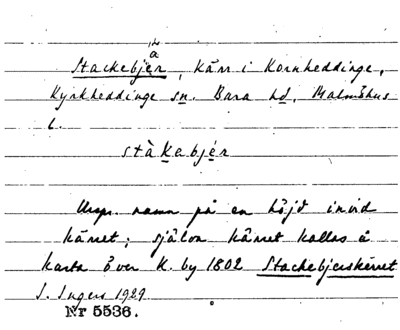 Stackebjer, kärr i Kornheddinge,
Kyrkheddinge sn. Bara hd, Malmöhus
l.
stàkabjér
Urspr. namn på en höjd invid
kärret; själva kärret kallas å
karta över K. by 1802 Stackebjerskerret
I. Ingers 1929
Nr 5536.